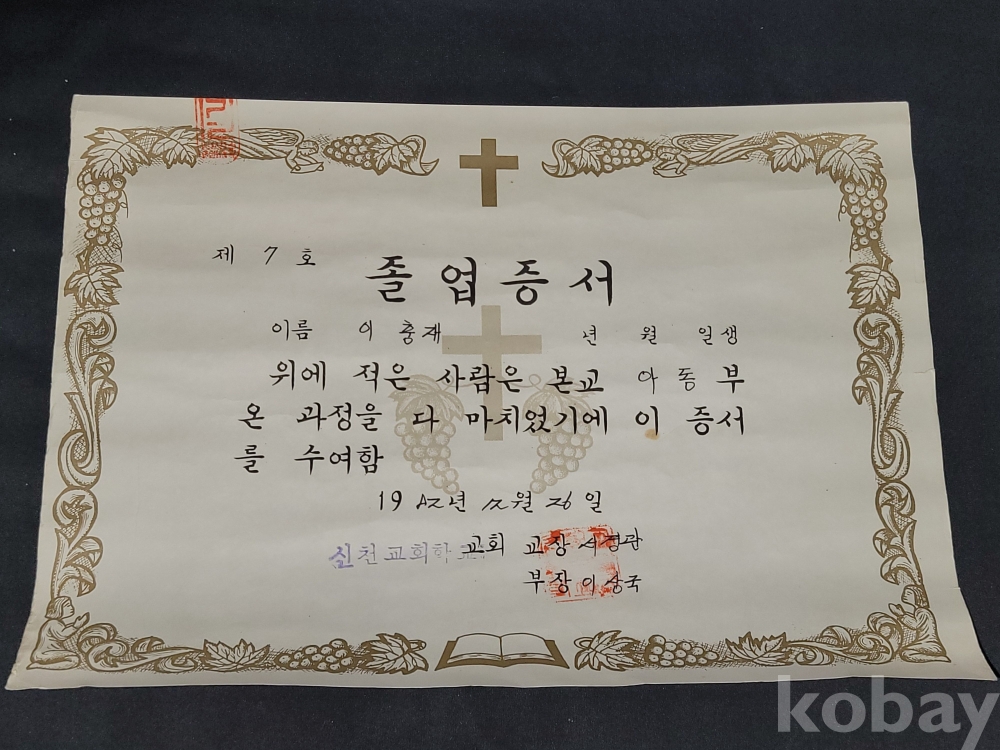 제 7 호
졸업증서
이름 이 충재 년 월 일생
위에 적은 사람은 본교 아동부
온 과정을 다 마치었기에 이 증서
를 수여함
19 년 12월 26일
신천교회학교 교회 교장 서경관
부장 이상국
kobay